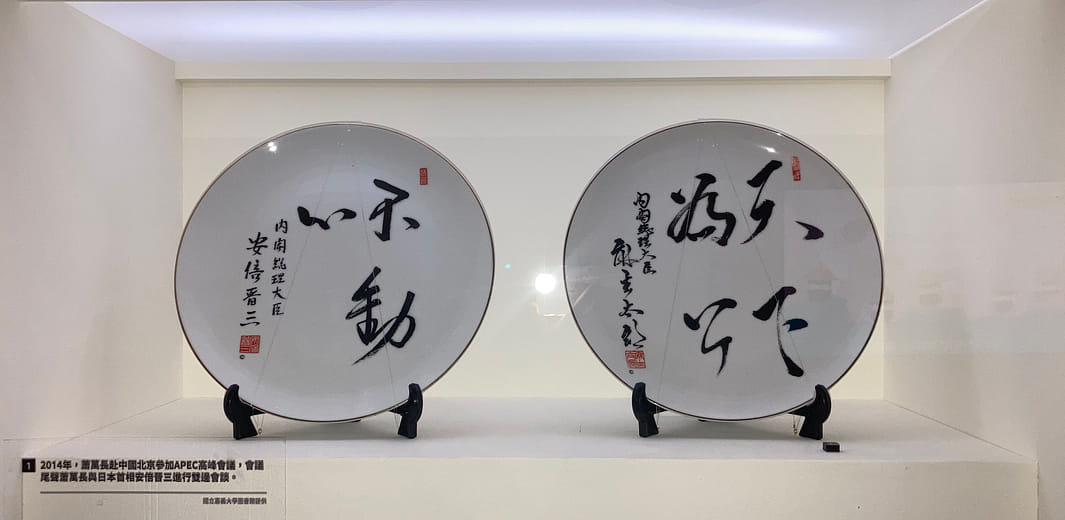 不動
心
内閣総理大臣
安倍晋三
天下
為公
内閣総理大臣
麻生太郎
1 2014年，蕭萬長赴中國北京參加APEC高峰會議，會議
尾聲蕭萬長與日本首相安倍晉三進行雙邊會談。
國立嘉義大學圖書館提供